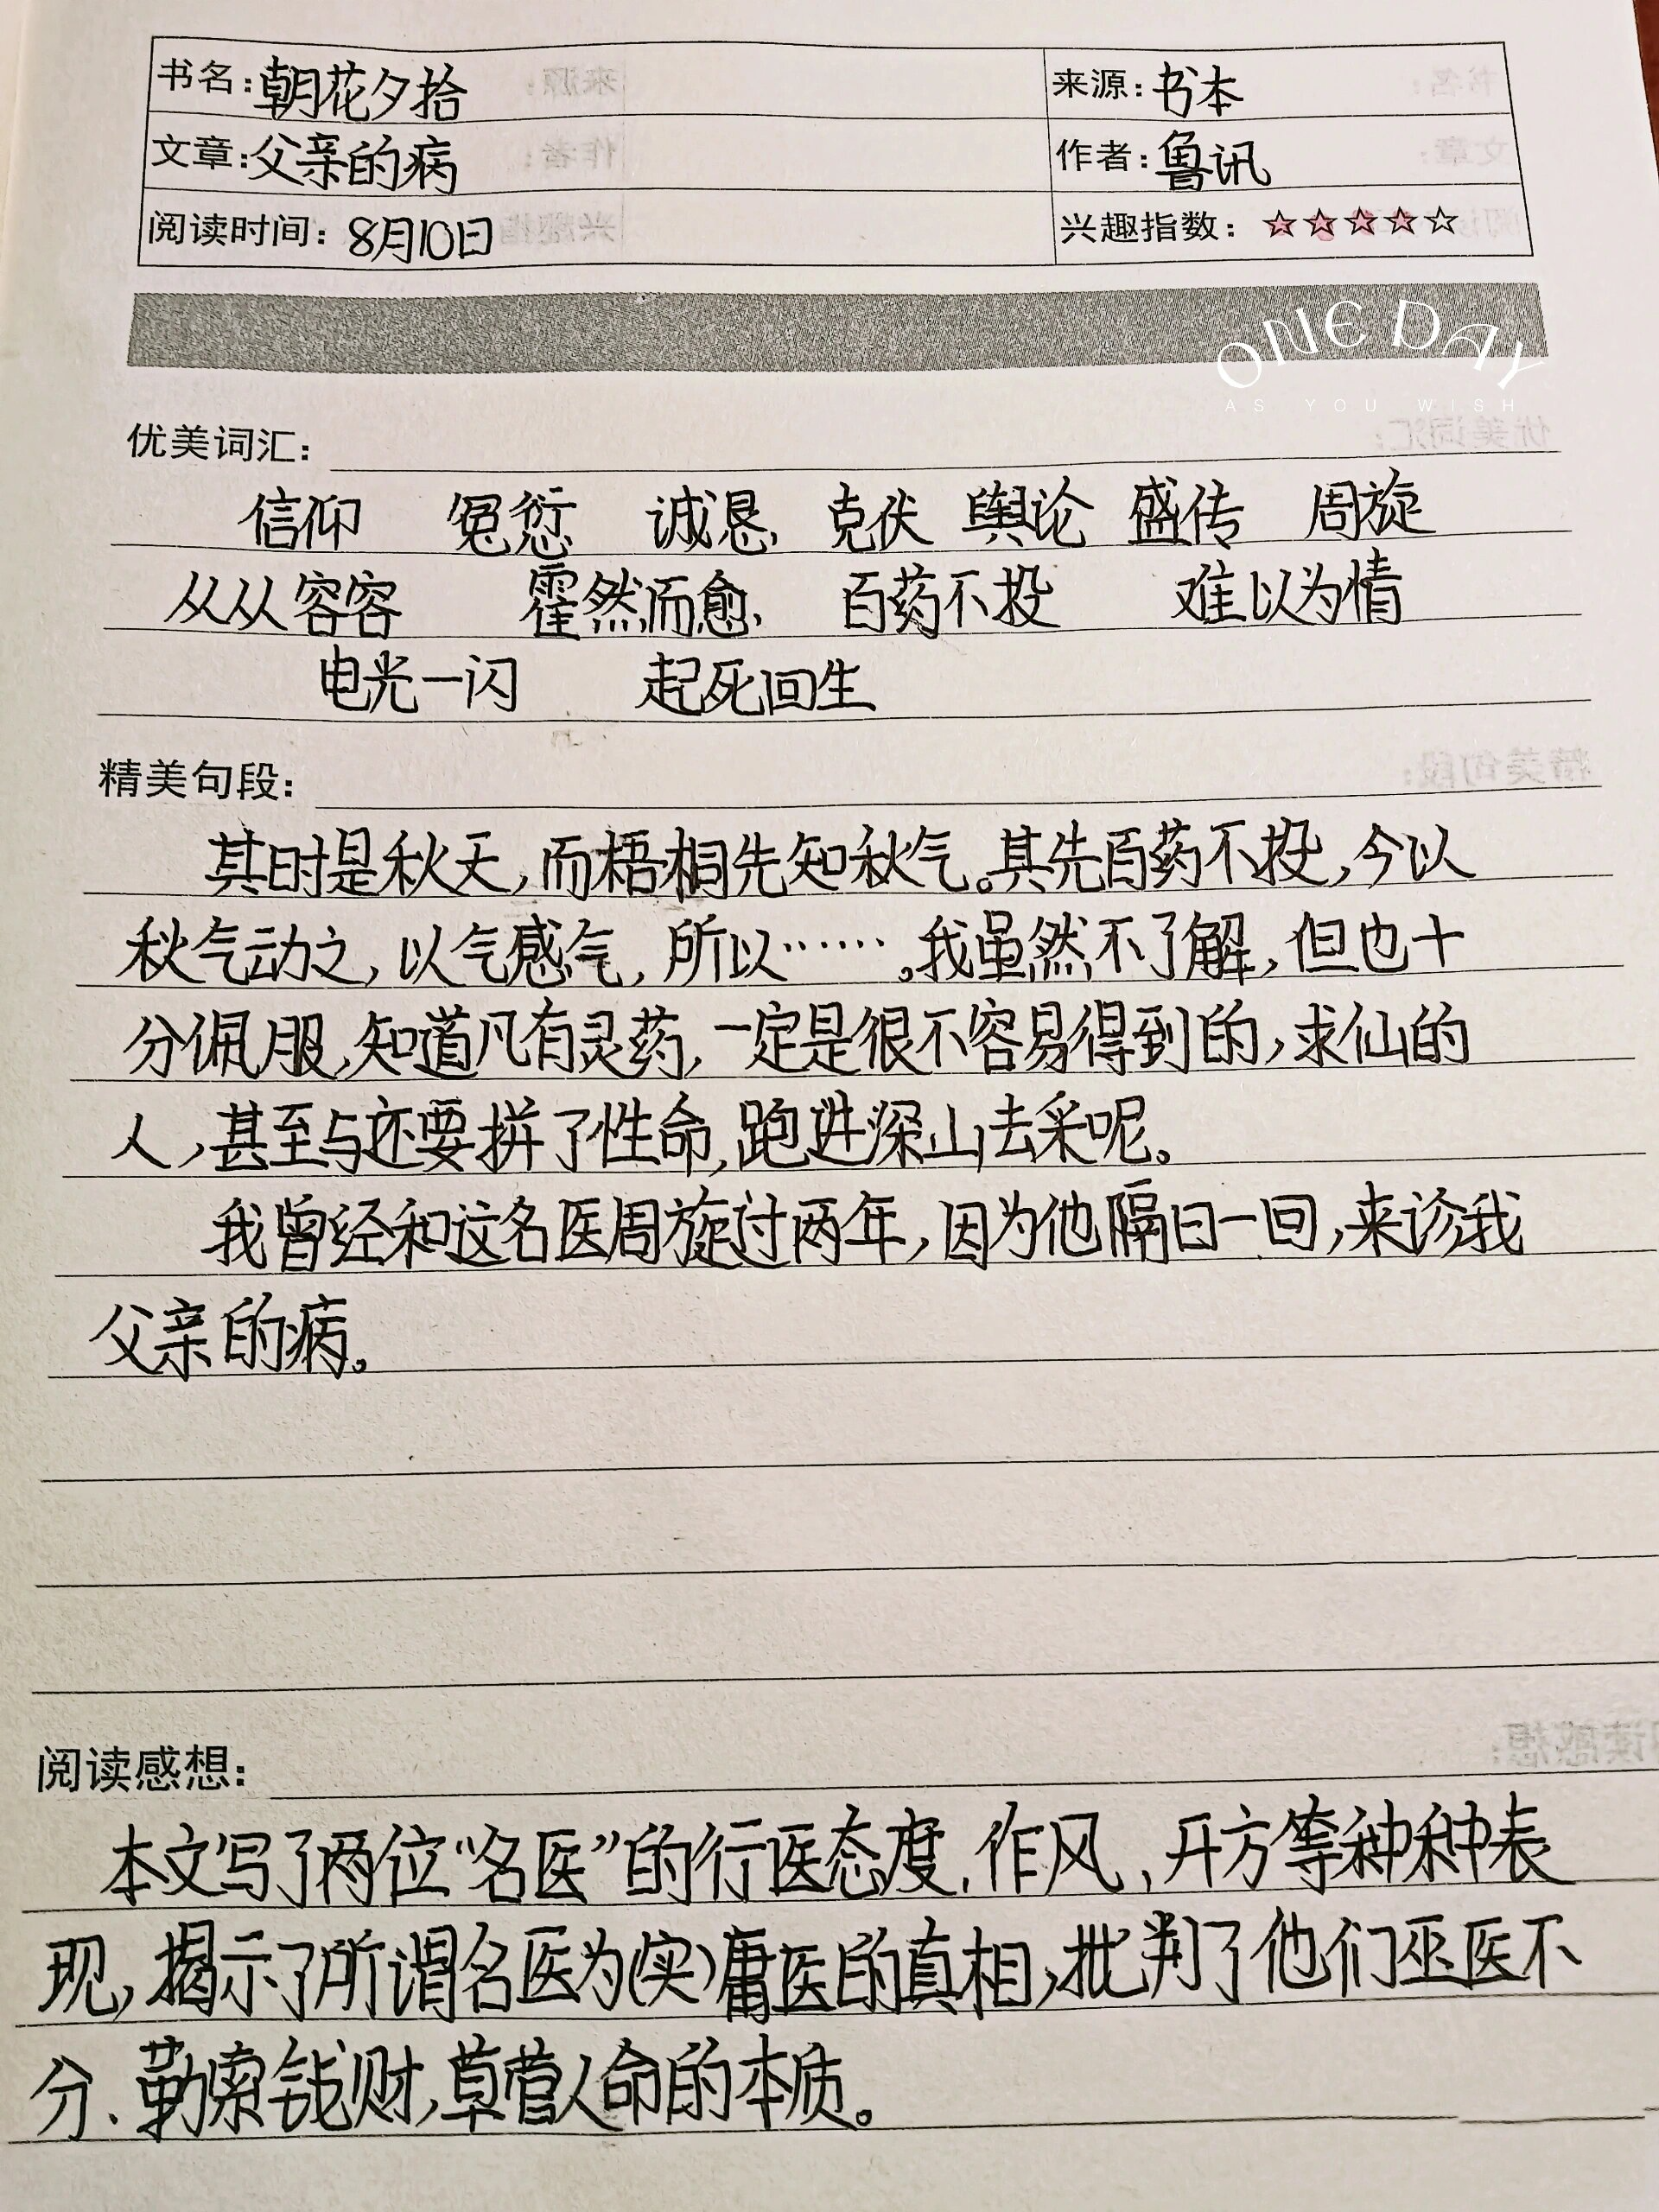 书名：朝花夕拾 来源：书本
文章：父亲的病 作者：鲁讯
阅读时间：8月10日 兴趣指数：☆☆☆☆☆
ONE DAY
AS YOU WISH
优美词汇：
信仰 冤愆 诚恳 克伏 舆论 盛传 周旋
从从容容 霍然而愈 百药不投 难以为情
电光一闪 起死回生
精美句段：
其时是秋天，而梧桐先知秋气。其先百药不投，今以
秋气动之，以气感气，所以……。我虽然不了解，但也十
分佩服，知道凡有灵药，一定是很不容易得到的，求仙的
人，甚至与还要拼了性命，跑进深山去采呢。
我曾经和这名医周旋过两年，因为他隔日一回，来诊我
父亲的病。
阅读感想：
本文写了两位“名医”的行医态度、作风、开方等种种表
现，揭示了所谓名医为(实)庸医的真相，批判了他们巫医不
分、勒索钱财，草菅人命的本质。